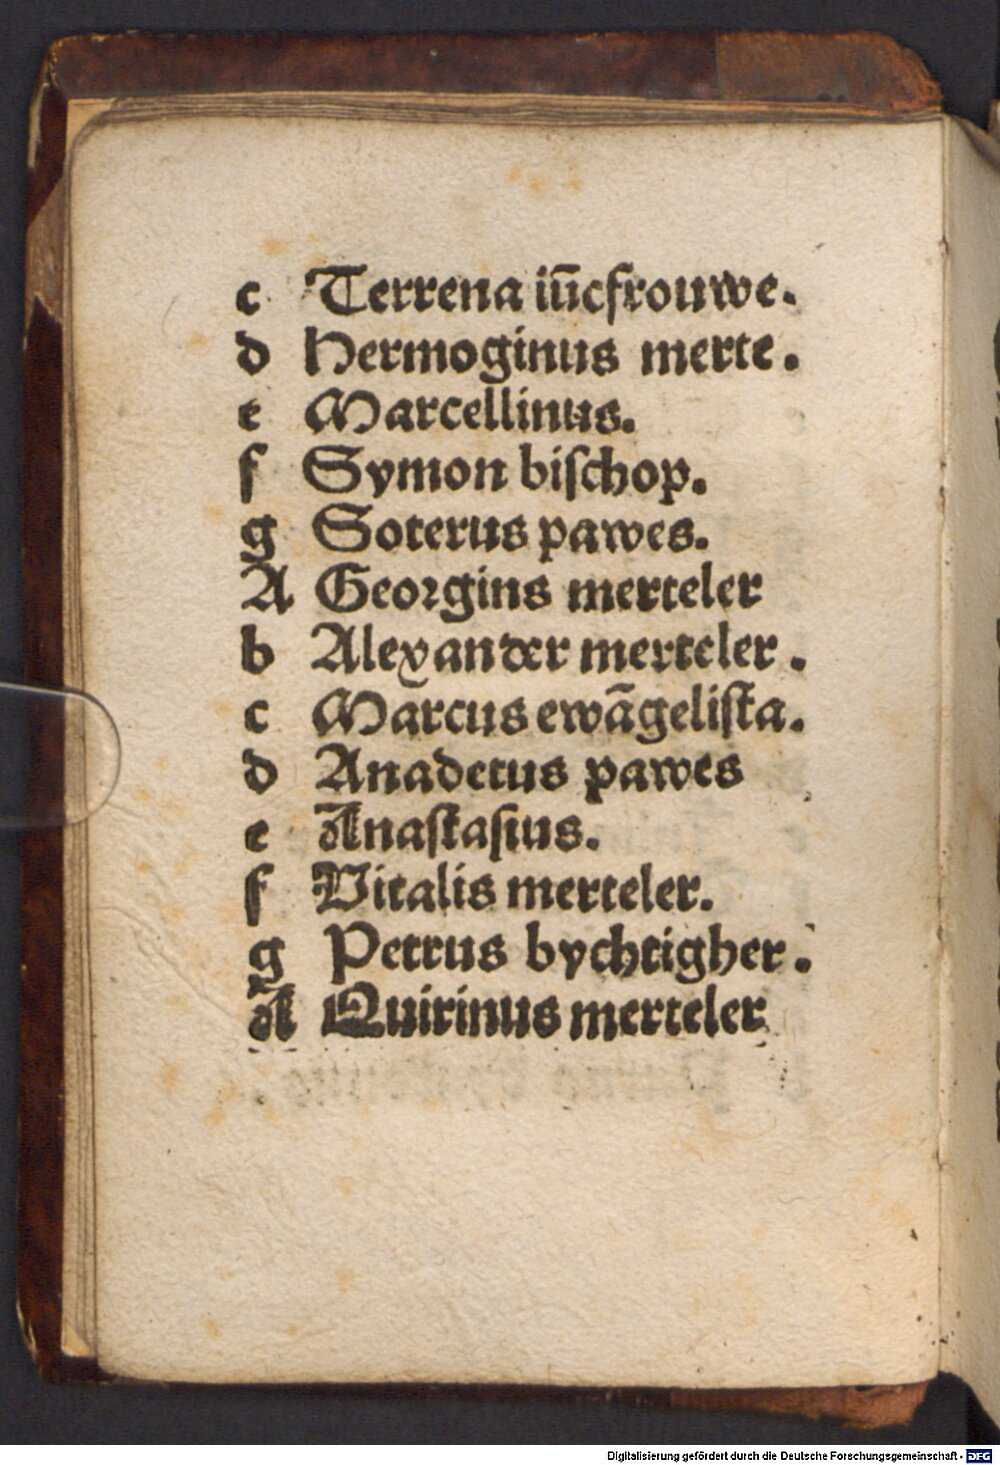 c Terrena iūcfrouwe.
d Hermoginus merte.
e Marcellinus.
f Symon biſchop.
g Soterus pawes.
A Georgins merteler
b Alexander merteler.
c Marcus ewāgeliſta.
d Anadetus pawes
e Anaſtaſius.
f Vitalis merteler.
g Petrus bychtigher.
A Quirinus merteler
Digitalisierung gefördert durch die Deutsche Forschungsgemeinschaft - DFG